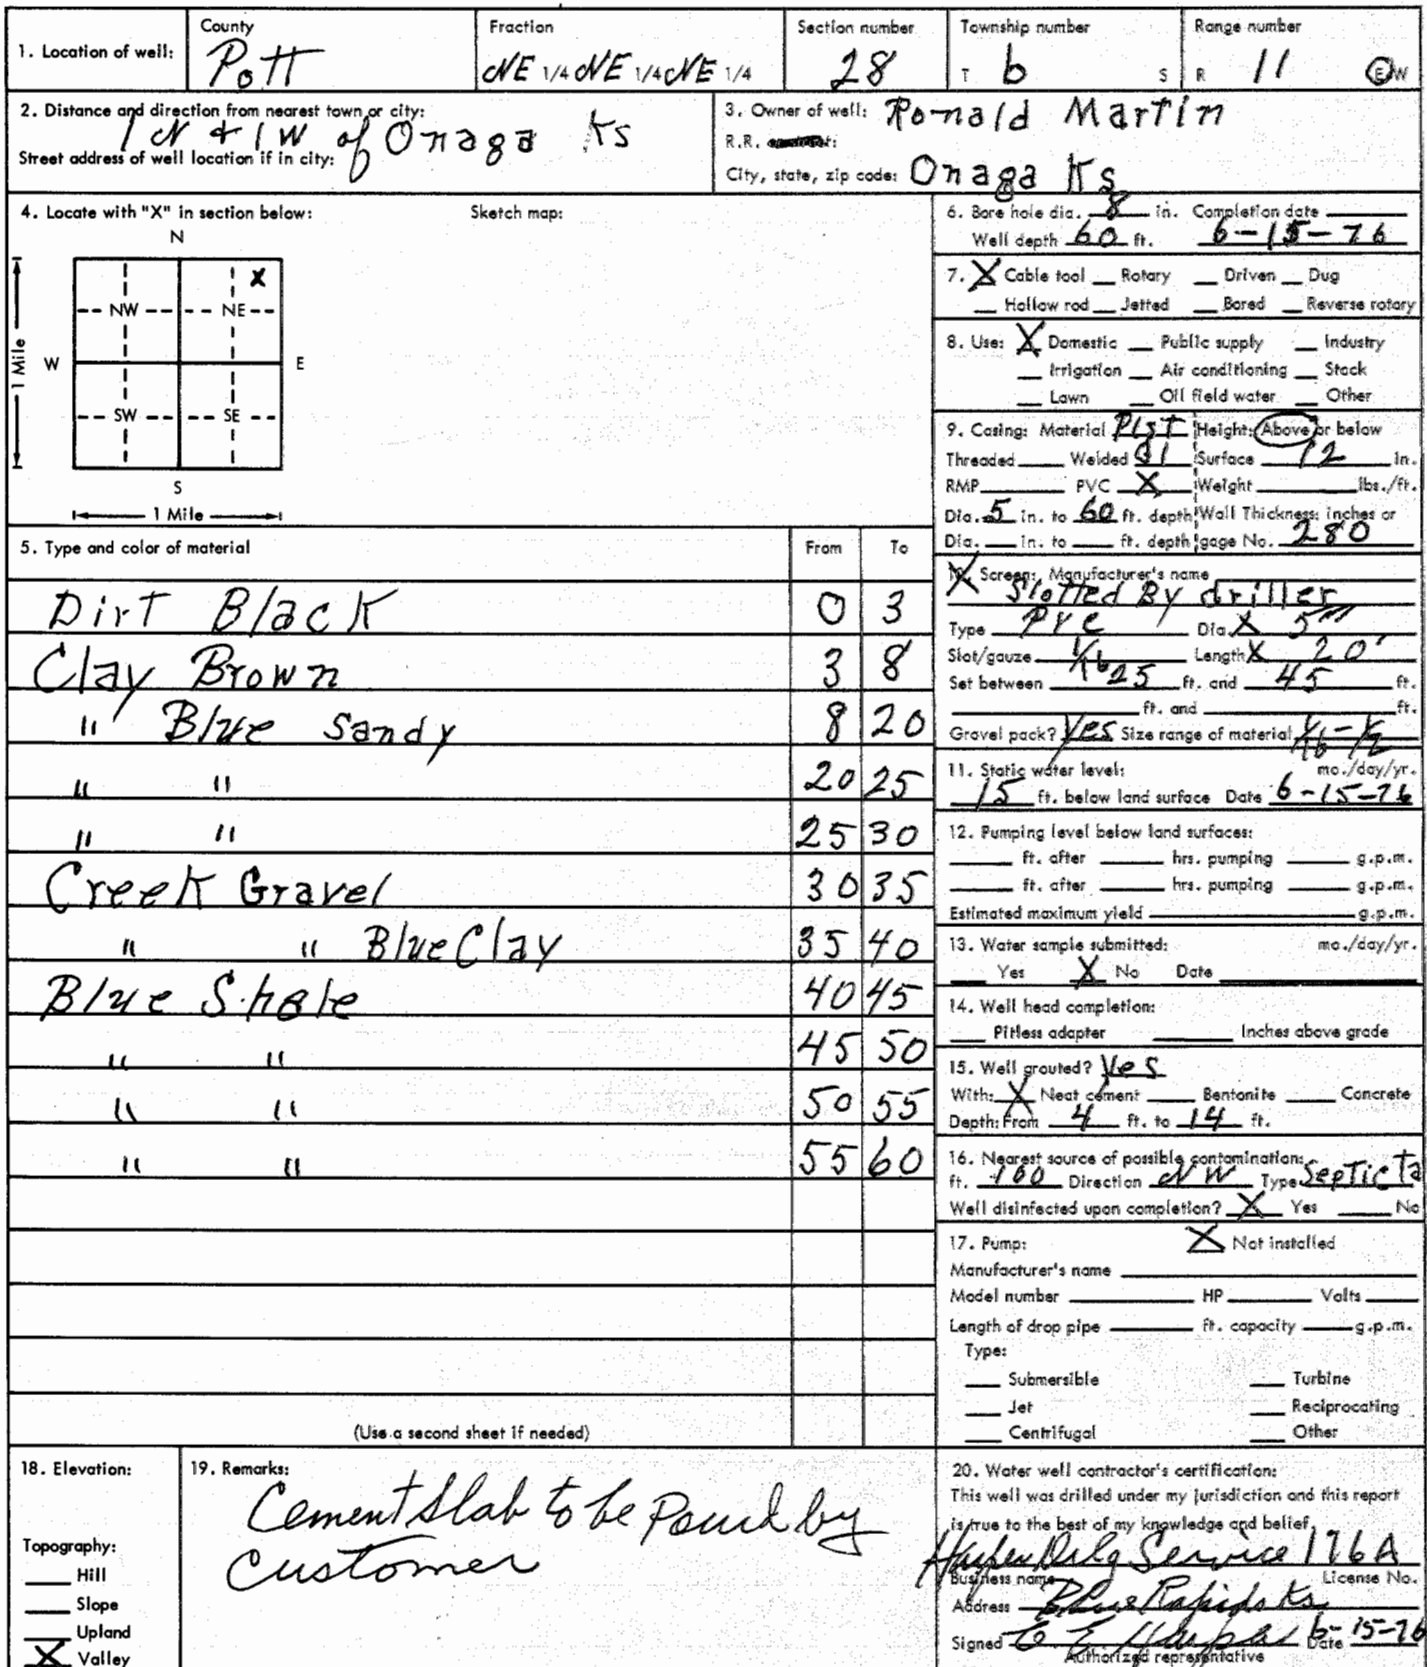 1. Location of well: County Pott Fraction NE 1/4 NE 1/4 NE 1/4 Section number 28 Township number T 6 S Range number R 11 E W
2. Distance and direction from nearest town or city: 1 N + 1 W of Onaga Ks
Street address of well location if in city:
3. Owner of well: Ronald Martin
R.R.
City, state, zip code: Onaga Ks
4. Locate with "X" in section below: Sketch map:
N
X
NW NE
1 Mile W E
SW SE
S
1 Mile
5. Type and color of material From To
Dirt Black 0 3
Clay Brown 3 8
" Blue Sandy 8 20
" " 20 25
" " 25 30
Creek Gravel 30 35
" " Blue Clay 35 40
Blue Shale 40 45
" " 45 50
" " 50 55
" " 55 60
(Use a second sheet if needed)
6. Bore hole dia. 8 in. Completion date
Well depth 60 ft. 6-15-76
7. X Cable tool Rotary Driven Dug
Hollow rod Jetted Bored Reverse rotary
8. Use: X Domestic Public supply Industry
Irrigation Air conditioning Stock
Lawn Oil field water Other
9. Casing: Material Plst Height: Above or below
Threaded Welded Gl Surface 12 in.
RMP PVC X Weight lbs./ft.
Dia. 5 in. to 60 ft. depth Wall Thickness: inches or
Dia. in. to ft. depth gage No. 280
10. Screen: Manufacturer's name
Slotted By driller
Type PVC Dia. X 5"
Slot/gauze 1/16 Length X 20'
Set between 25 ft. and 45 ft.
ft. and ft.
Gravel pack? Yes Size range of material 1/16 - 1/2
11. Static water level: mo./day/yr.
15 ft. below land surface Date 6-15-76
12. Pumping level below land surfaces:
ft. after hrs. pumping g.p.m.
ft. after hrs. pumping g.p.m.
Estimated maximum yield g.p.m.
13. Water sample submitted: mo./day/yr.
Yes X No Date
14. Well head completion:
Pitless adapter Inches above grade
15. Well grouted? Yes
With: X Neat cement Bentonite Concrete
Depth: From 4 ft. to 14 ft.
16. Nearest source of possible contamination:
ft. 100 Direction NW Type Septic Ta
Well disinfected upon completion? X Yes No
17. Pump: X Not installed
Manufacturer's name
Model number HP Volts
Length of drop pipe ft. capacity g.p.m.
Type:
Submersible Turbine
Jet Reciprocating
Centrifugal Other
18. Elevation:
Topography:
Hill
Slope
Upland
X Valley
19. Remarks:
Cement Slab to be Pourd by
Customer
20. Water well contractor's certification:
This well was drilled under my jurisdiction and this report
is true to the best of my knowledge and belief.
Drlg Service 176A
Business name License No.
Address Blue Rapids Ks
Signed Date 6-15-76
Authorized representative